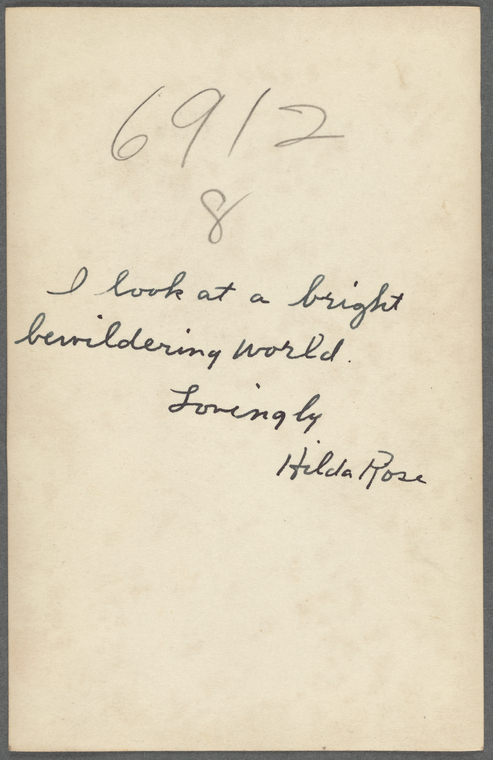 6912
8
I look at a bright
bewildering world.
Lovingly
Hilda Rose